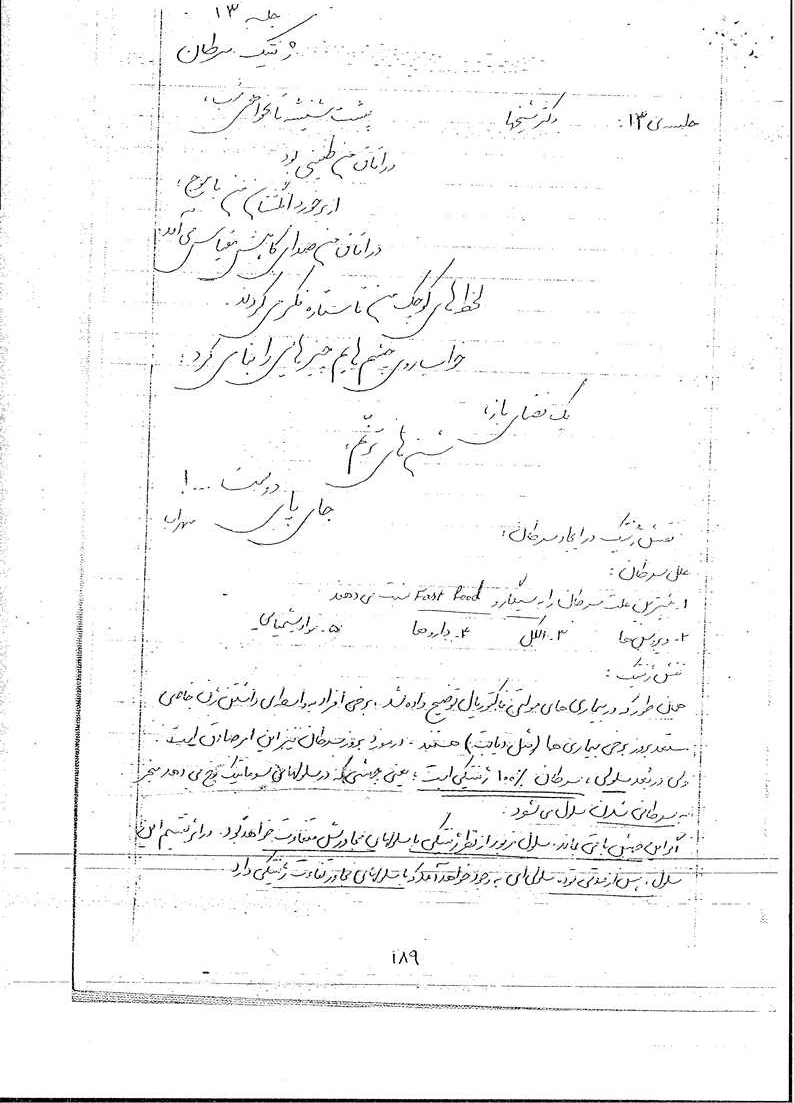 جلسه ۱۳
ژنتیک سرطان
جلسه ی ۱۳: دکتر شیخها
پشت شیشه تا بخواهی شب،
در اتاق من طنینی بود
از برخورد انگشتان من با اوج،
در اتاق من صدای کاهش مقیاس می آمد.
لحظه های کوچک من تا ستاره فکر می کردند.
خواب روی چشم هایم چیزهایی را بنا می کرد:
یک فضای باز،
شن های ترنّم،
جای پای دوست ...!
سهراب
نقش ژنتیک در ایجاد سرطان:
علل سرطان:
۱. بیشترین علت سرطان را به سیگار و Fast Food نسبت می دهند
۲- ویروس ها ۳- الکل ۴- داروها ۵- مواد شیمیایی
نقش ژنتیک:
همان طور که در بیماری های مولتی فاکتوریال توضیح داده شد، برخی افراد به واسطه ی داشتن ژن خاصی
مستعد بروز برخی بیماری ها (مثل دیابت) هستند. در مورد بروز سرطان نیز این امر صادق است.
ولی در بُعد سلولی، سرطان ۱۰۰٪ ژنتیکی است؛ یعنی جهشی که در سلولهای سوماتیک رخ می دهد منجر
به سرطانی شدن سلول می شود.
اگر این جهش باقی بماند، سلول مزبور از نظر ژنتیکی با سلولهای مجاورش متفاوت خواهد بود. در اثر تقسیم این
سلول، پس از مدتی توده سلولی ای به وجود خواهد آمد که با سلولهای مجاور تفاوت ژنتیکی دارد.
۱۸۹